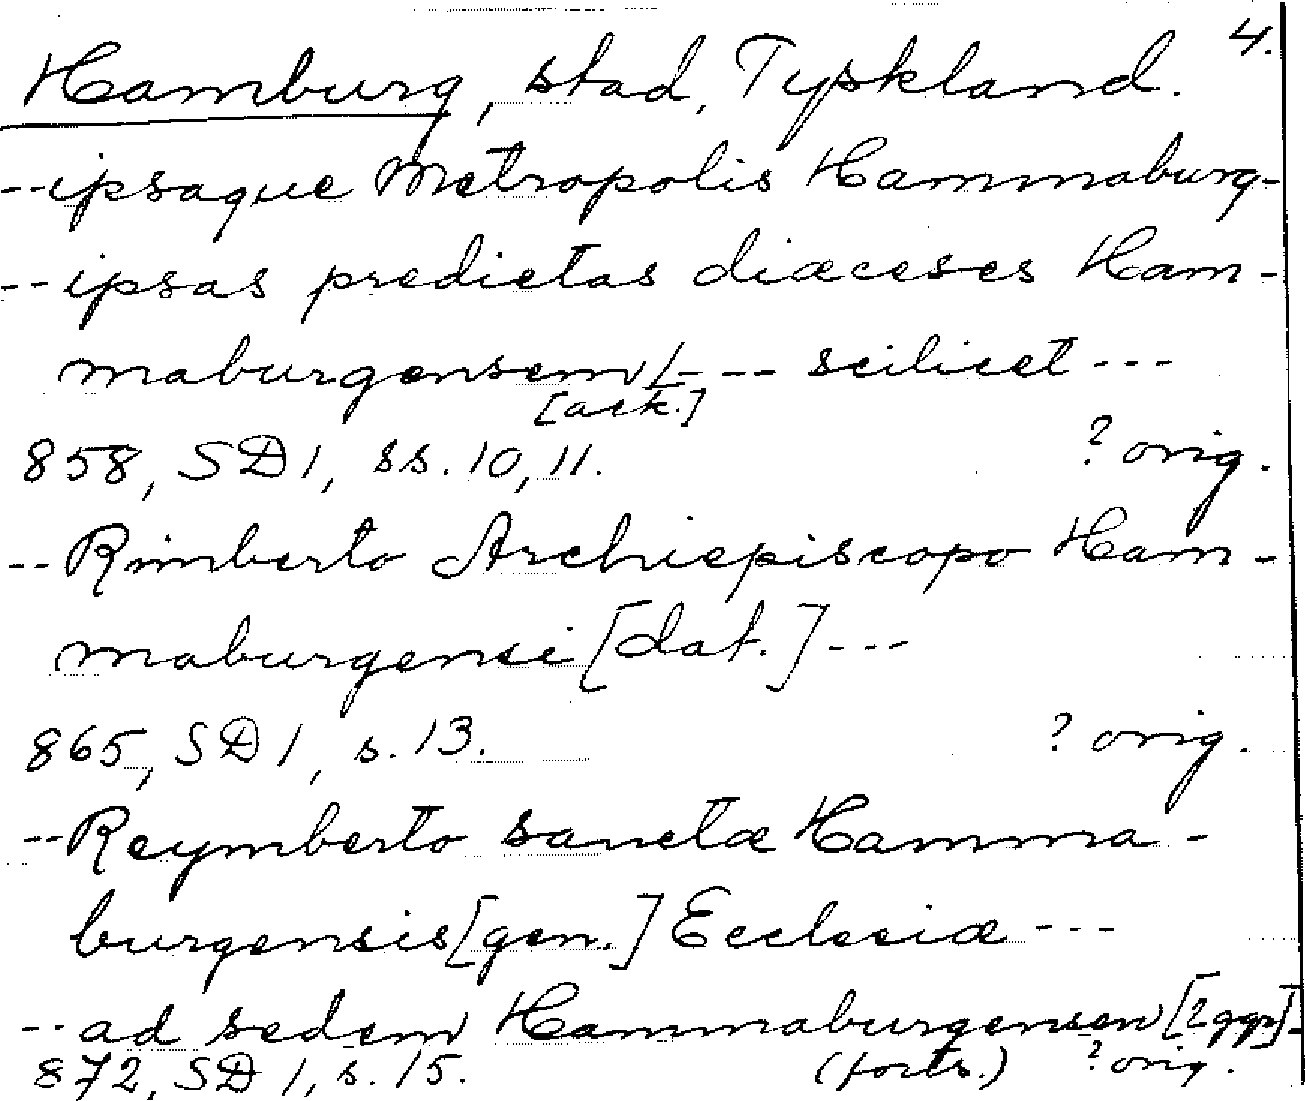 4.
Hamburg, stad, Tyskland.
--ipsaque Metropolis Hammaburg-
--ipsas predictas diæceses Ham-
maburgensem/--- scilicet ---
[ack.]
858, SD 1, ss. 10, 11. ? orig.
--Rimberto Archiepiscopo Ham-
maburgensi [dat.] ---
865, SD 1, s. 13. ? orig.
--Reymberto sanctæ Hamma-
burgensis [gen.] Ecclesiæ ---
--ad sedem Hammaburgensen [2 ggr]-
872, SD 1, s. 15. (forts.) ? orig.